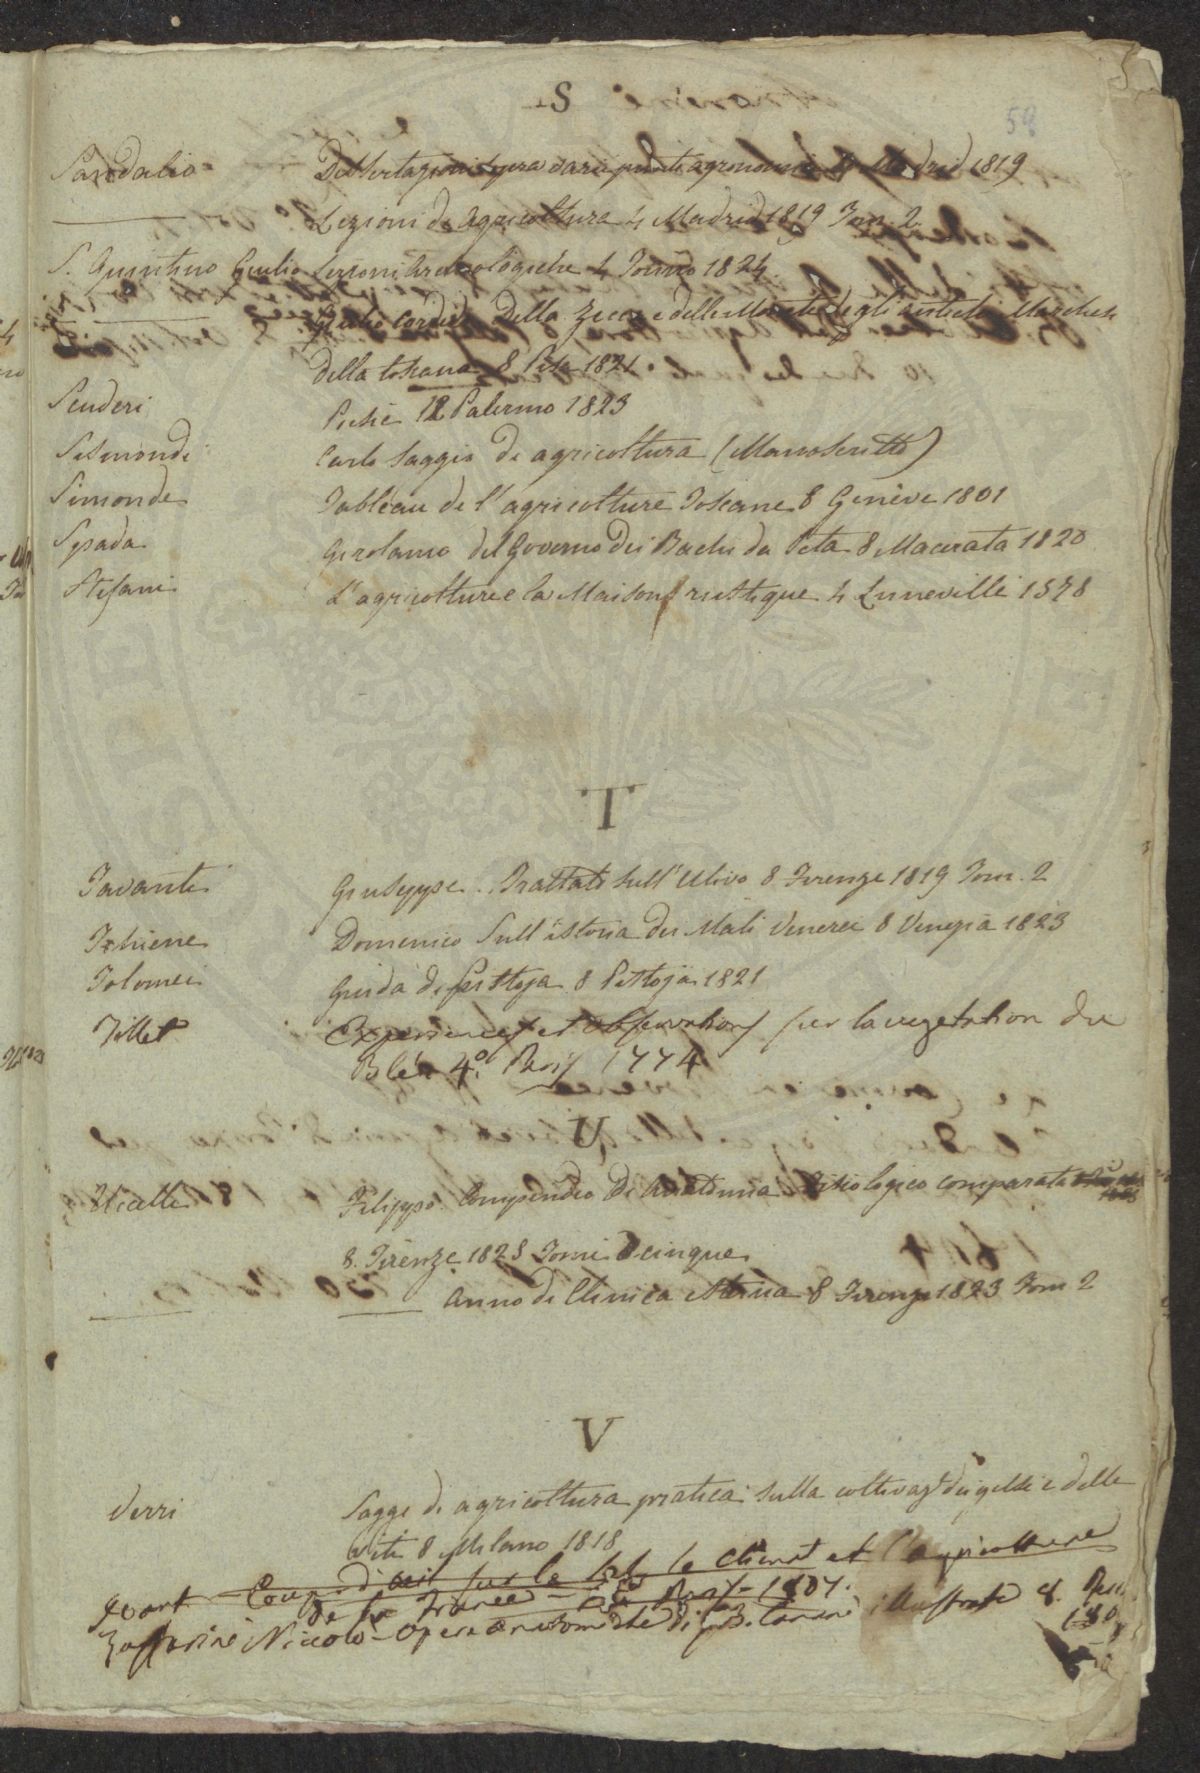 S
58
Sandalio Dissertazioni sopra varii punti agronomici 4 Madrid 1819
Lezioni di Agricoltura 4 Madrid 1819 Tom. 2
S. Quintino Giulio Lezioni Archeologiche 4 Torino 1824.
Giulio Cordero Della Zecca e delle Monete degli antichi Marchesi
della toscana 8 Pisa 1821.
Scuderi Poesie 12 Palermo 1823
Sismondi Carlo Saggio di agricoltura (Manoscritto)
Simonde Tableau de l'agricolture Toscane 8 Genève 1801
Spada Girolamo del Governo dei Bachi da Seta 8 Macerata 1820
Stefani L'agricolture e la Maison rustique 4 Luneville 1578
.T.
Tavanti Giuseppe. Trattato sull'Ulivo 8 Firenze 1819 Tom. 2
Thiene Domenico Sull'istoria dei Mali Venerei 8 Venezia 1823
Tolomei Guida di Pistoja 8 Pistoja 1821
Tillet Experiences et observations sur la vegetation du
Blé 4.° Paris 1774
U
Uccelli Filippo. Compendio di Anatomia Fisiologico comparata
8. Firenze 1825 Tomi cinque
Anno di Clinica esterna 8 Firenze 1823 Tom 2
V
Verri Saggi di agricoltura pratica sulla coltivaz.e dei gelsi e delle
viti 8 Milano 1818
Yvart Coup d'oeil sur le sol, le climat et l'agricolture
de la France - Paris - 1807.
Zaffarini Niccolò - Opere anatomiche di illustrate 8.